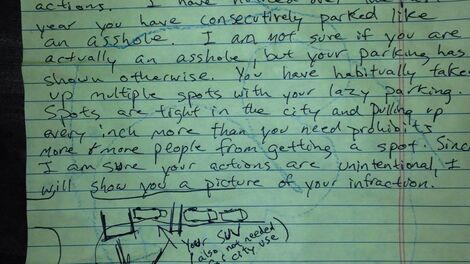 actions. I have
year you have consecutively parked like
an asshole. I am not sure if you are
actually an asshole, but your parking has
shown otherwise. You have habitually take
up multiple spots with your lazy parking.
Spots are tight in the city and pulling up
every inch more than you need prohibits
more & more people from getting a spot. Sinc
I am sure your actions are unintentional, I
will show you a picture of your infraction.
Your SUV
(also not needed
for city use)